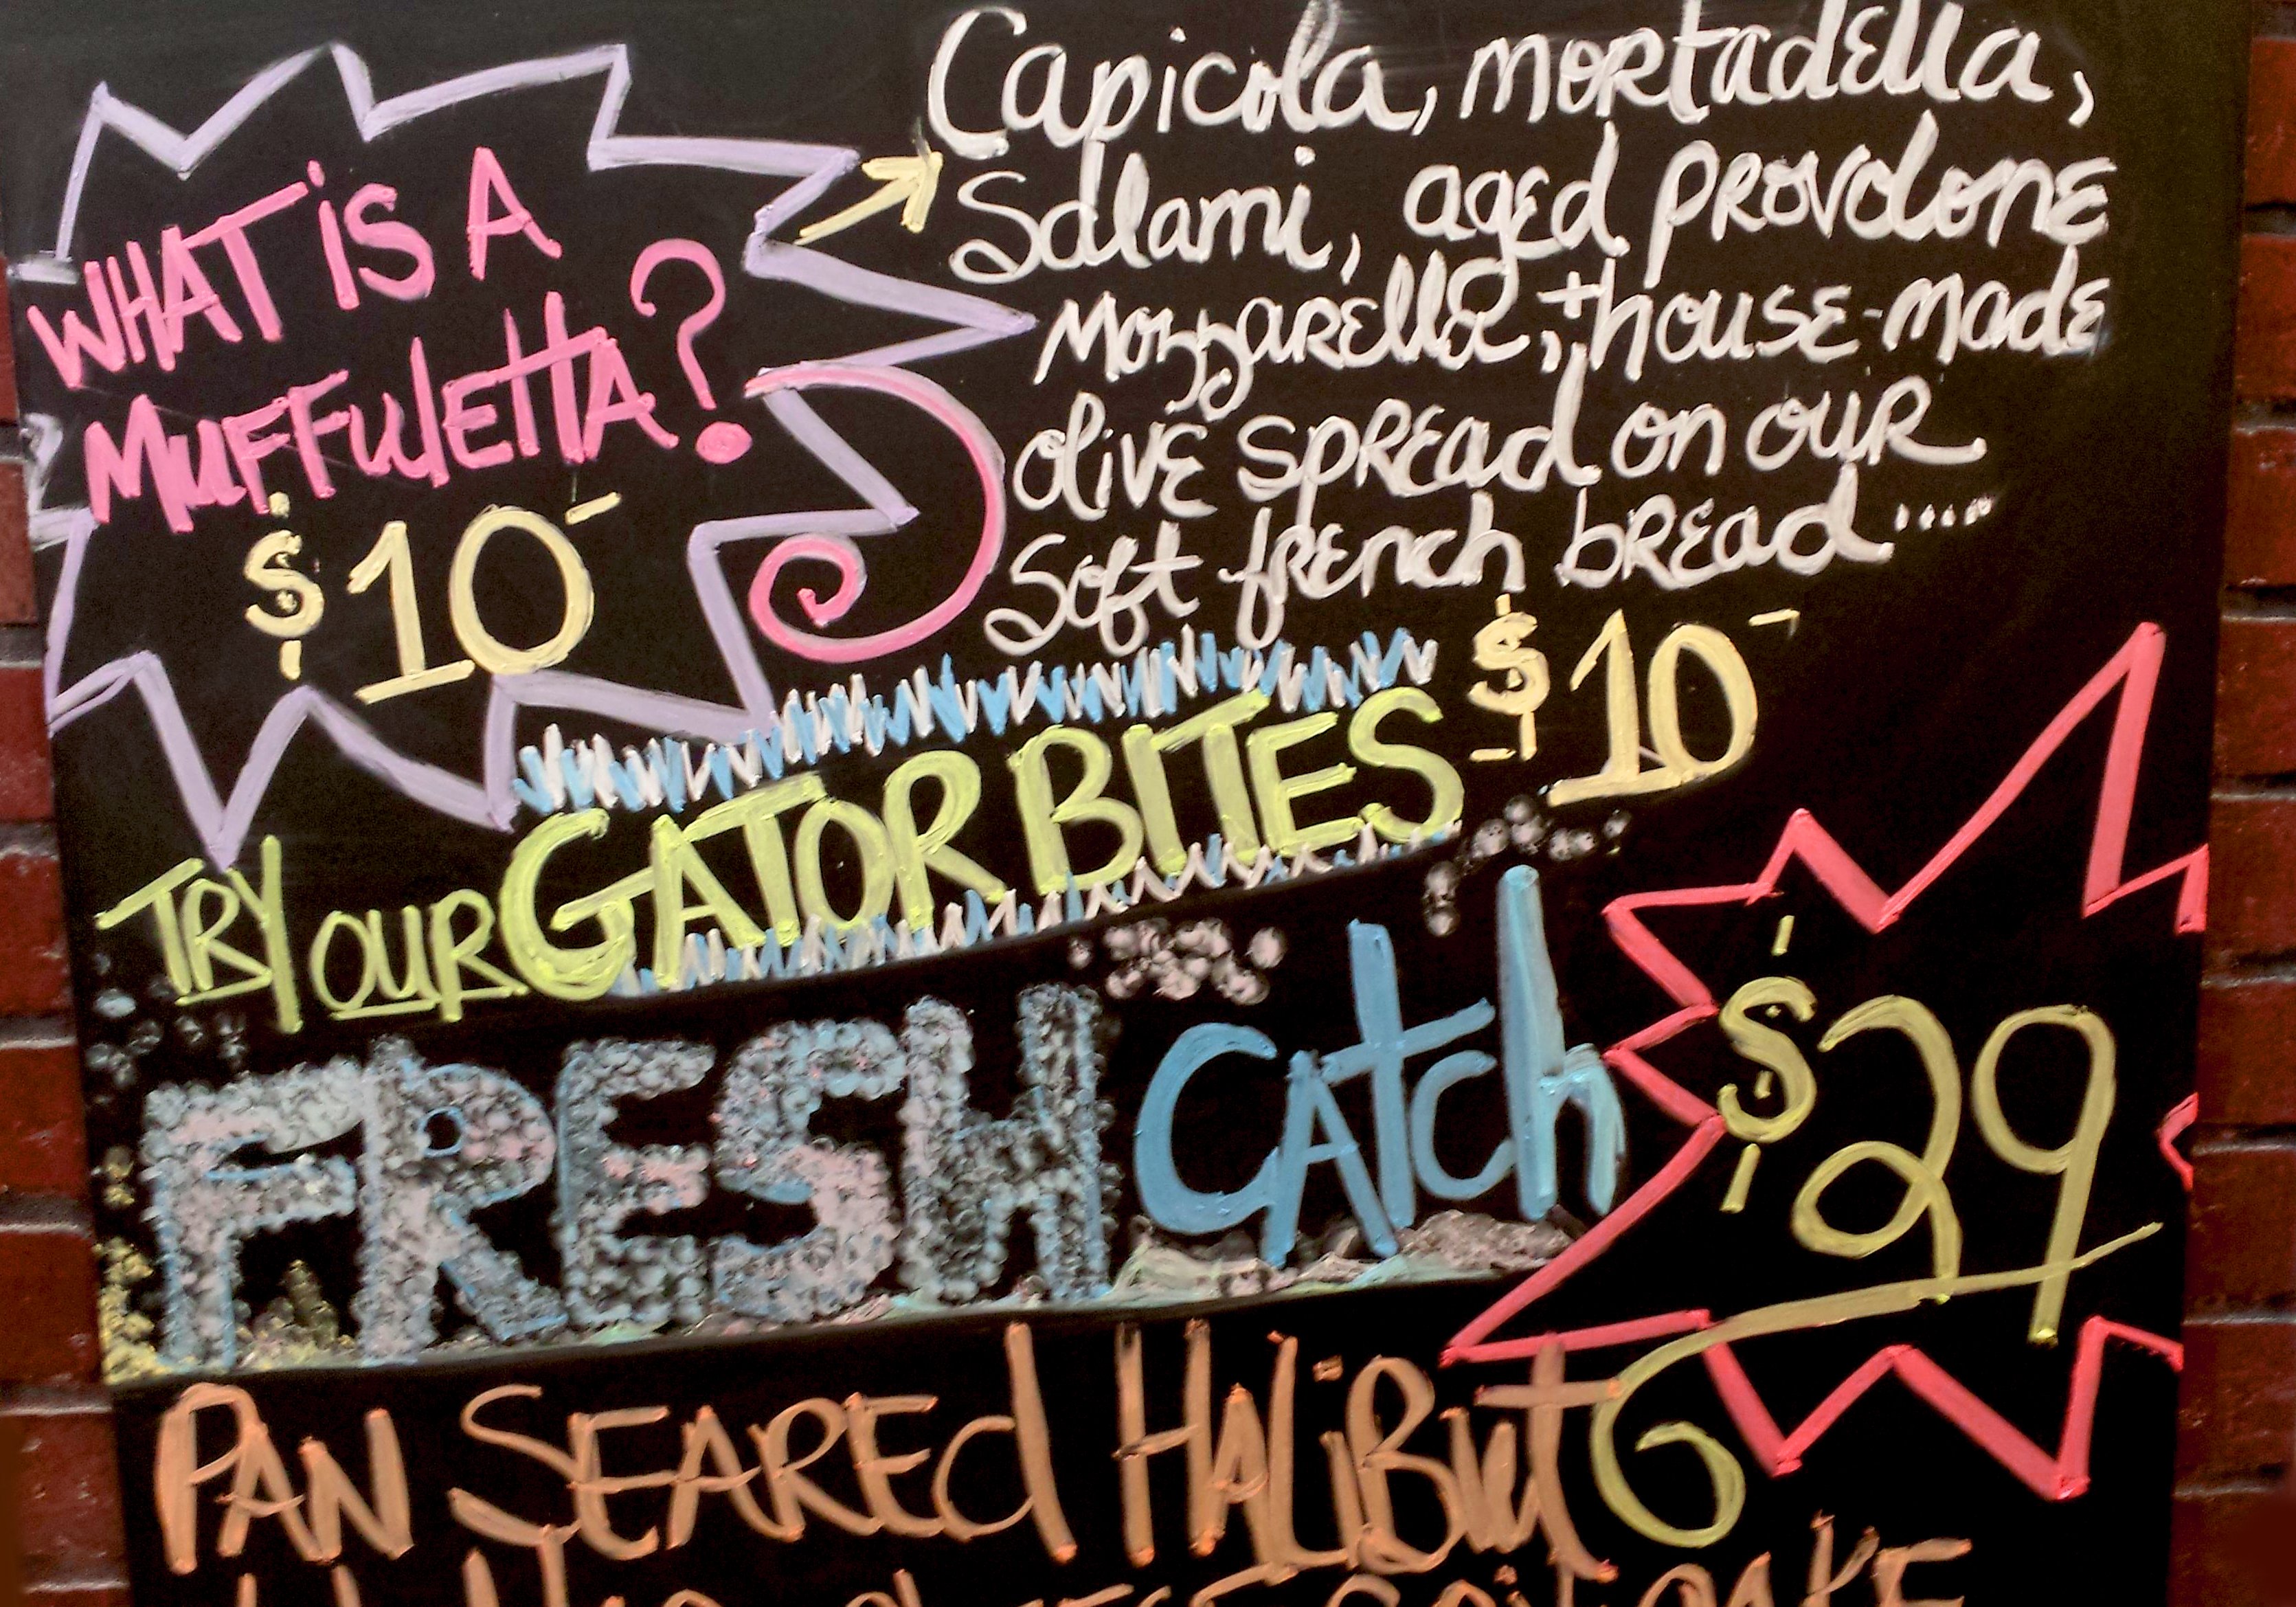 WHAT iS A
MUFFulettA?
$10-
Capicola, mortadella,
Salami, aged provolone
Mozzarella, + house-made
olive spread on our
Soft french bread .....
TRY OUR GATOR BITES - $10-
FRESH CAtch
$29
PAN SEAREd HALiBut